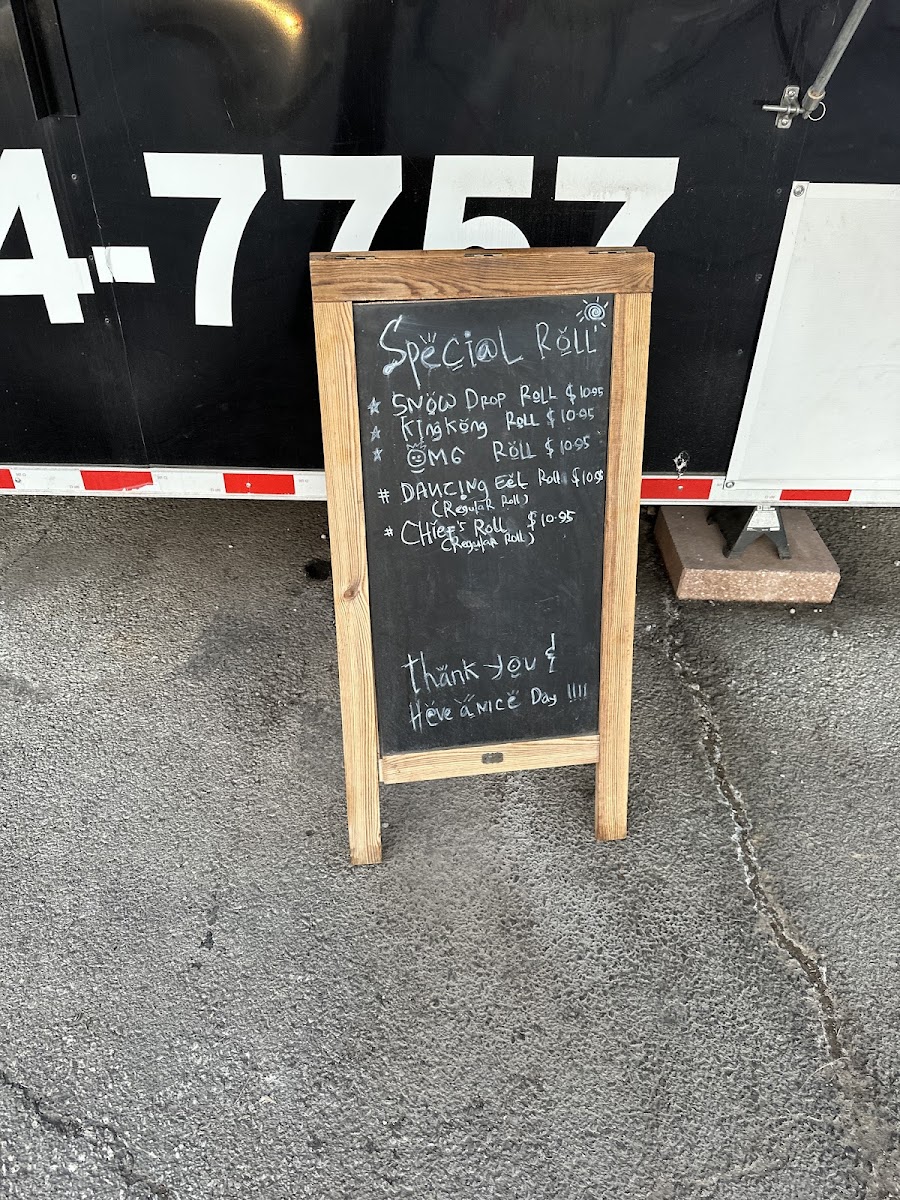 4-7757
Special Roll
SNOW DROP ROLL $10.95
KingKong Roll $10.95
OMG ROLL $10.95
# DANCING EEL Roll $10.95
(Regular Roll)
# CHIEF'S ROLL $10.95
(Regular Roll)
thank you &
HeVe a NICE Day !!!!